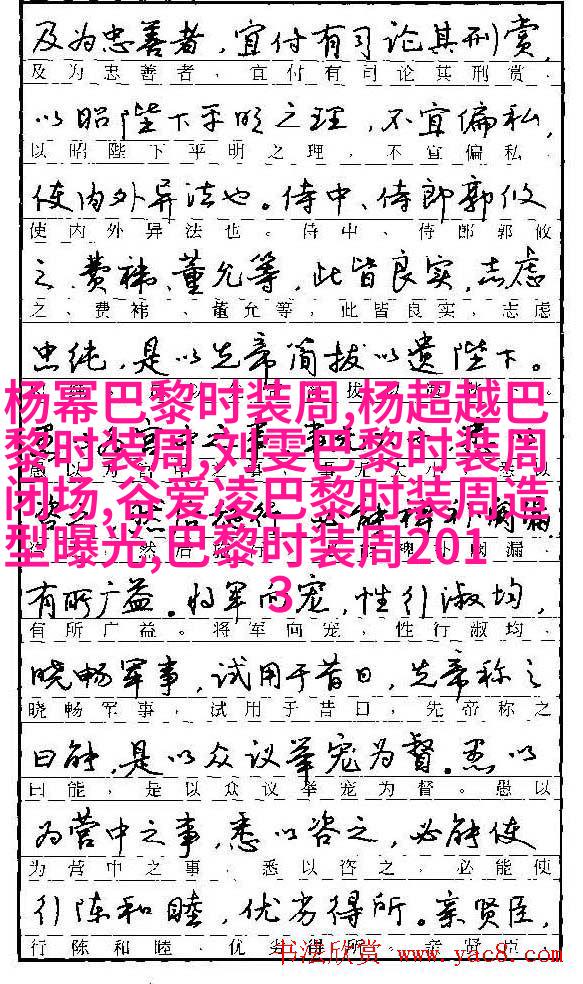 及为忠善者，宜付有司论其刑赏，
及为忠善者，宜付有司论其刑赏，
以昭陛下平明之理，不宜偏私，
以昭陛下平明之理，不宜偏私，
使内外异法也。侍中、侍郎郭攸
使内外异法也。侍中、侍郎郭攸
之、费祎、董允等，此皆良实，志虑
之、费祎、董允等，此皆良实，志虑
忠纯，是以先帝简拔以遗陛下。
杨幂巴黎时装周,杨超越巴
黎时装周,刘雯巴黎时装周
闭场,谷爱凌巴黎时装周造
型曝光,巴黎时装周201
3
有所广益。将军向宠，性行淑均，
有所广益。将军向宠，性行淑均，
晓畅军事，试用于昔日，先帝称之
晓畅军事，试用于昔日，先帝称之
曰能，是以众议举宠为督。愚以
曰能，是以众议举宠为督。愚以
为营中之事，悉以咨之，必能使
为营中之事，悉以咨之，必能使
行阵和睦，优劣得所。亲贤臣，
行阵和睦，优劣得所。亲贤臣，
书法欣赏 www.yac8.com